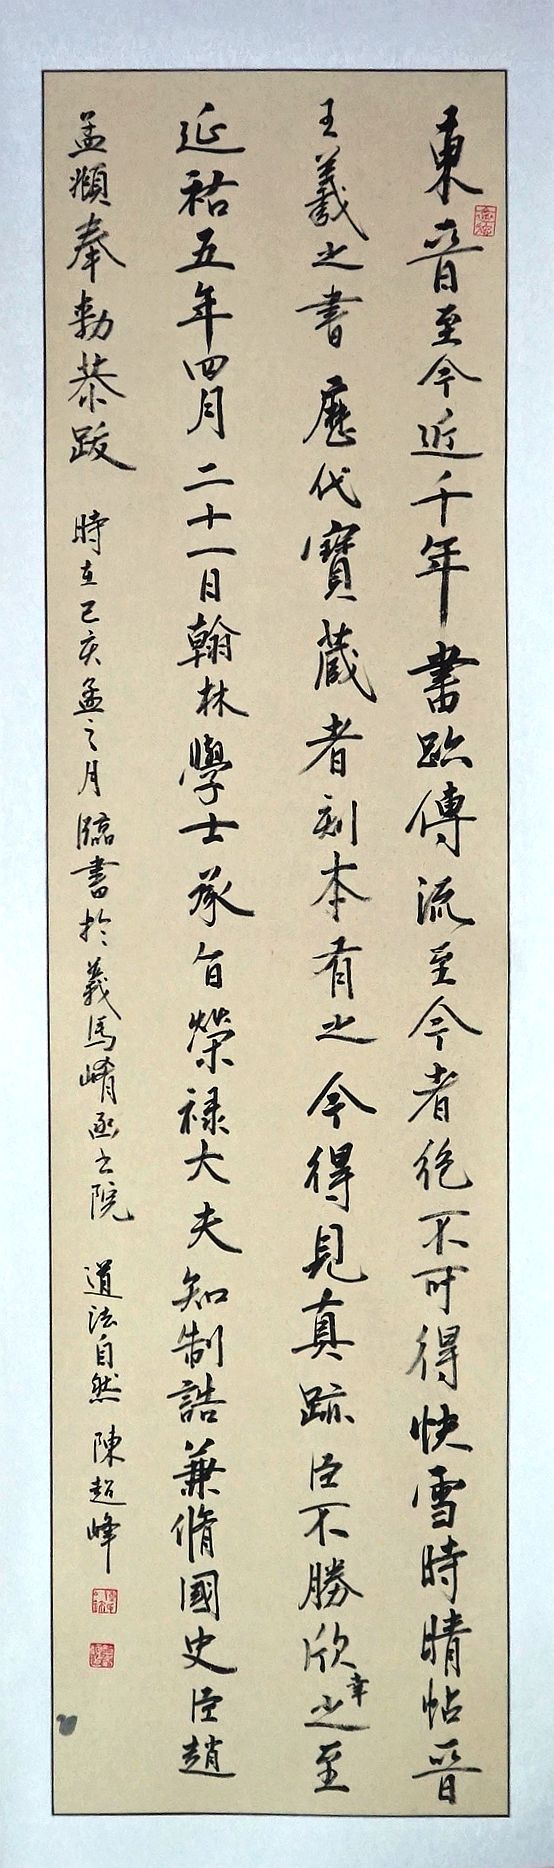 東晉至今近千年書跡傳流至今者絕不可得快雪時晴帖晉
王羲之書歷代寶藏者刻本有之今得見真跡臣不勝欣幸之至
延祐五年四月二十一日翰林學士承旨榮祿大夫知制誥兼脩國史臣趙
孟頫奉勅恭跋 時在己亥孟之月臨書於義馬崤函書院 道法自然 陳超峰